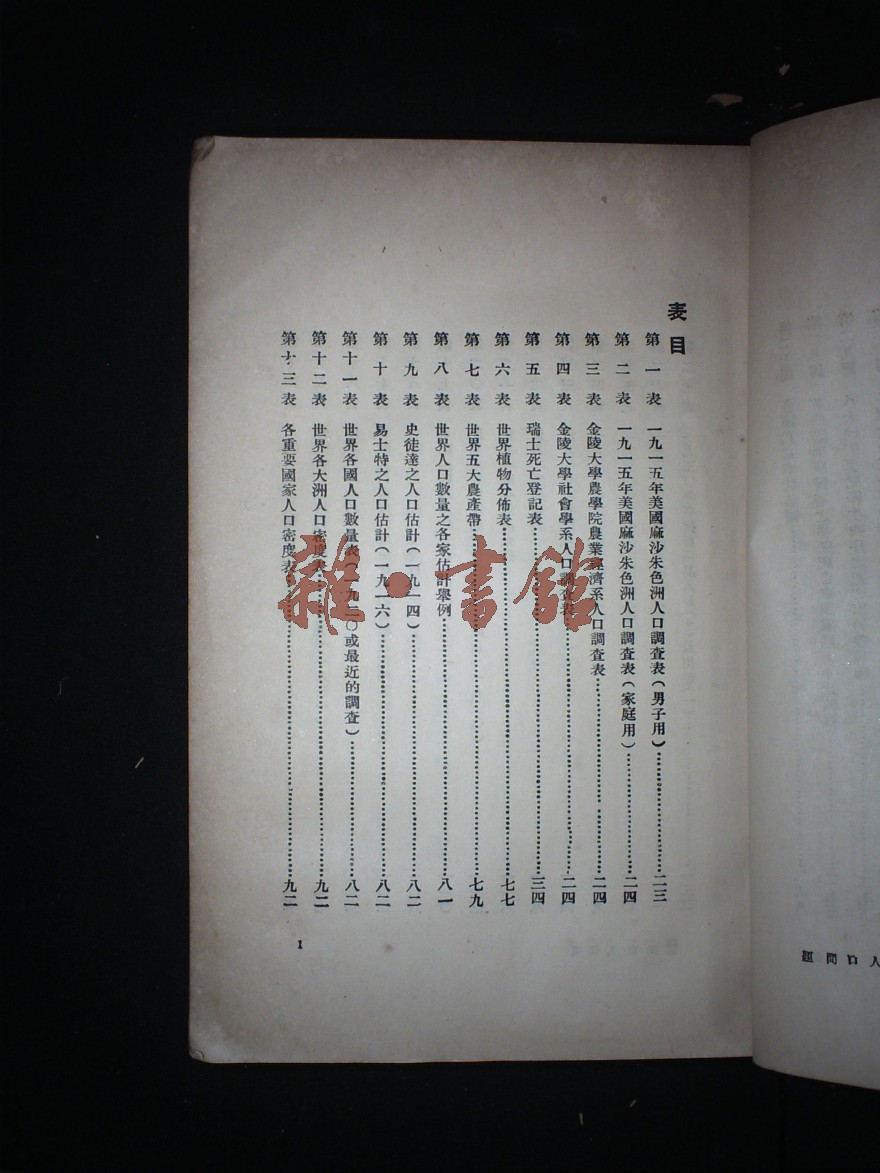 表目
第一表 一九一五年美國麻沙朱色洲人口調查表(男子用)……二三
第二表 一九一五年美國麻沙朱色洲人口調查表(家庭用)……二四
第三表 金陵大學農學院農業經濟系人口調查表……二四
第四表 金陵大學社會學系人口調查表……二四
第五表 瑞士死亡登記表……三四
第六表 世界植物分佈表……七七
第七表 世界五大農產帶……七九
第八表 世界人口數量之各家估計舉例……八一
第九表 史徒達之人口估計(一九一四)……八二
第十表 易士特之人口估計(一九一六)……八二
第十一表 世界各國人口數量表(一九二〇或最近的調查)……八二
第十二表 世界各大洲人口密度表……九二
第十三表 各重要國家人口密度表……九二
1
人口問題
雜·書館